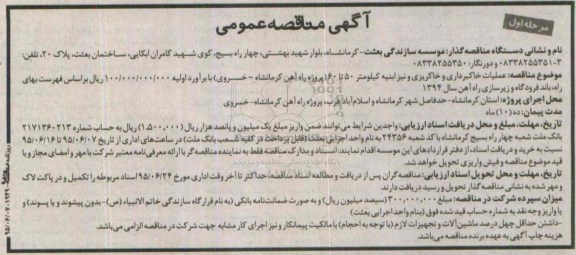 مرحله اول
آگهی مناقصه عمومی
نام و نشانی دستگاه مناقصه گذار: موسسه سازندگی بعثت- کرمانشاه، بلوار شهید بهشتی، چهار راه بسیج، کوی شهید کامران ابکایی، ساختمان بعثت، پلاک ۲۰، تلفن:
۰۸۳۳۸۲۵۵۳۵۱-۳ و دورنگار: ۰۸۳۳۸۲۵۵۳۵۰
موضوع مناقصه: عملیات خاکبرداری و خاکریزی و نیز ابنیه کیلومتر ۵۰ تا ۶۰ (پروژه راه آهن کرمانشاه - خسروی) با برآورد اولیه ۱۰۰/۰۰۰/۰۰۰/۰۰۰ ریال بر اساس فهرست بهای
راه، باند فرودگاه و زیرسازی راه آهن سال ۱۳۹۴
محل اجرای پروژه: استان کرمانشاه- حدفاصل شهر کرمانشاه و اسلام آباد غرب، پروژه راه آهن کرمانشاه- خسروی
مدت پیمان: ۱۰ (ده) ماه
تاریخ، مهلت، مبلغ و محل دریافت اسناد ارزیابی: واجدین شرایط می توانند ضمن واریز مبلغ یک میلیون و پانصد هزار ریال (۱,۵۰۰,۰۰۰) ریال به حساب شماره ۲۱۷۱۳۶۰۲۱۳
بانک ملت شعبه چهار راه بسیج کرمانشاه با کد شعبه ۲۴۳۵۶ به نام واحد اجرایی بعثت (قابل پرداخت در کلیه شعب بانک ملت) در ساعت های اداری از تاریخ ۹۵/۰۶/۰۷ تا ۹۵/۰۶/۱۶
نسبت به خرید و دریافت اسناد، از دفتر قراردادهای این موسسه اقدام نمایند. اسناد و مدارک مناقصه فقط به نماینده مناقصه گر با ارائه معرفی نامه معتبر شرکت با مهر و امضای مجاز و با
قید موضوع مناقصه و فیش واریزی تحویل خواهد شد.
تاریخ، مهلت و محل تحویل اسناد ارزیابی: مناقصه گران پس از دریافت و مطالعه اسناد مناقصه، حداکثر تا آخر وقت اداری مورخ ۹۵/۰۶/۲۴ اسناد مربوطه را تکمیل و در پاکت لاک
و مهر شده به نشانی مناقصه گذار تحویل و رسید دریافت دارند.
میزان سپرده شرکت در مناقصه: مبلغ ۳۰۰,۰۰۰,۰۰۰ (سیصد میلیون ریال) و به صورت ضمانت نامه بانکی (به نام قرارگاه سازندگی خاتم الانبیاء (ص)- بدون پیشوند و یا پسوند) و
یا واریز وجه نقد به شماره حساب قید شده فوق (بنام واحد اجرایی بعثت)
-داشتن حداقل چهل درصد ماشین آلات و تجهیزات لازم (با توجه به احجام) با مالکیت پیمانکار و نیز اجرای کار مشابه جهت شرکت در مناقصه الزامی می باشد.
هزینه چاپ آگهی به عهده برنده مناقصه می باشد.